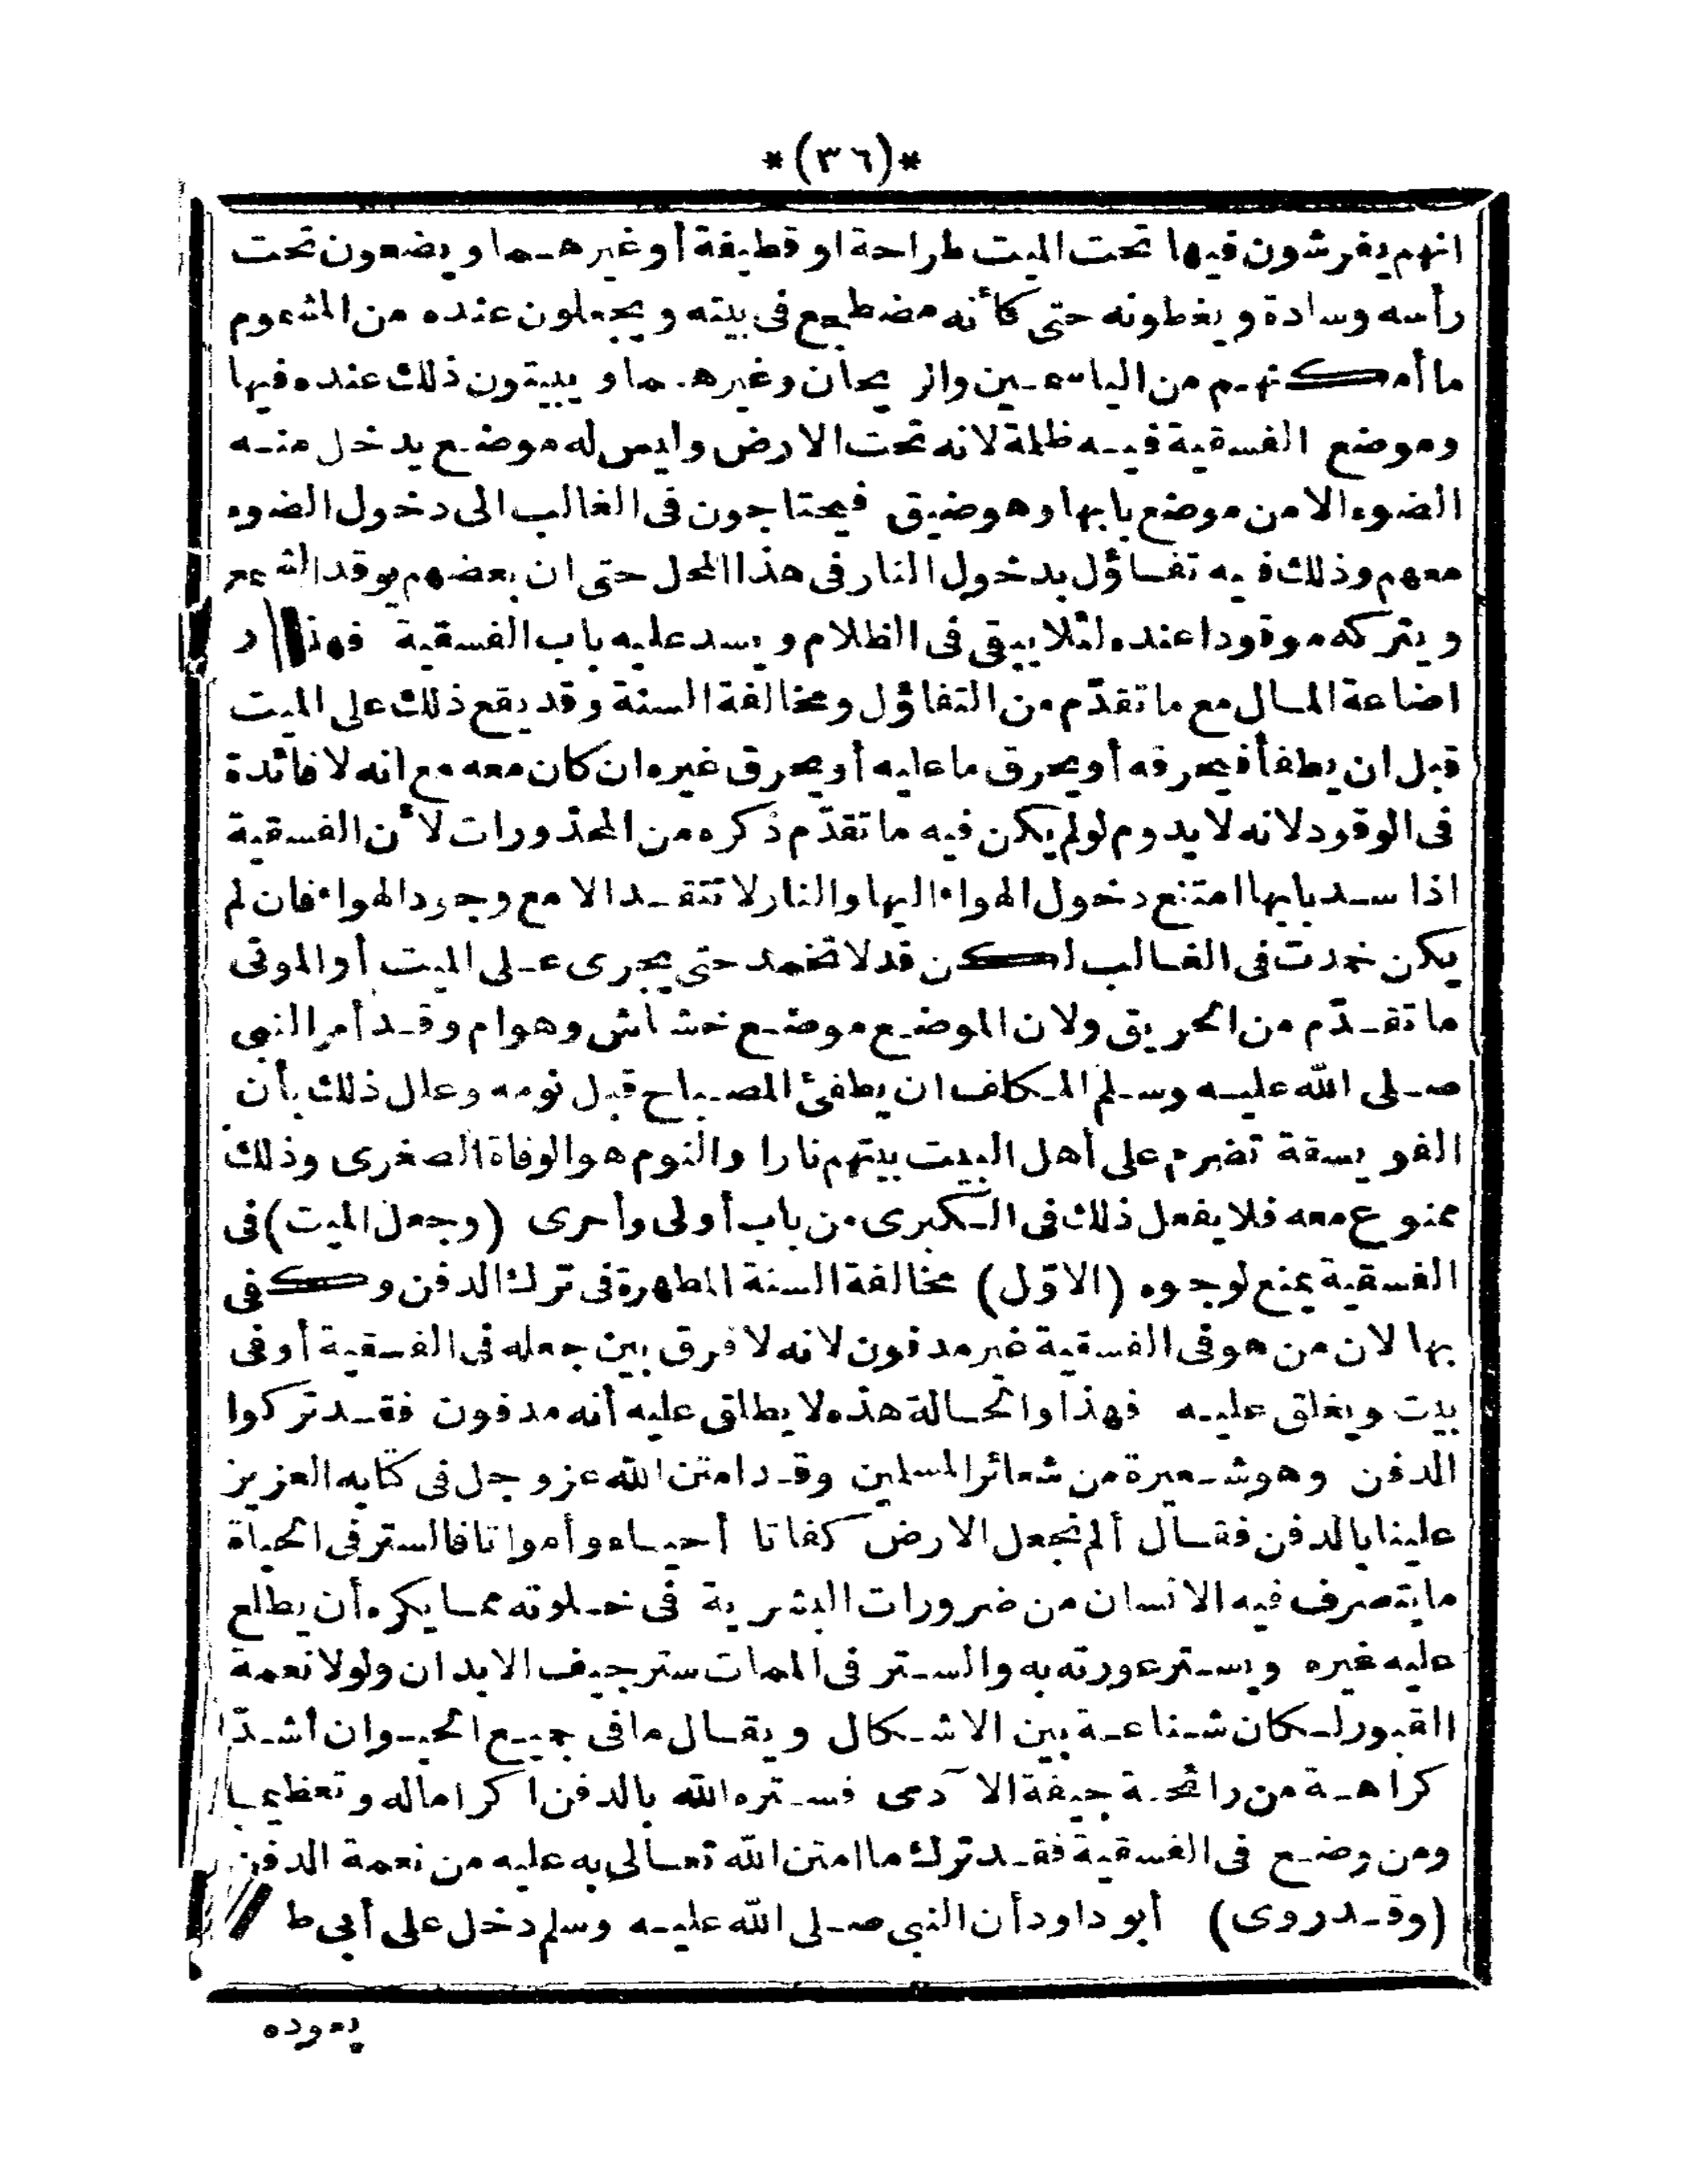 *(٣٦)*
انهم يفرشون فيها تحت الميت طراحة او قطيفة أو غيرهما ويضعون تحت
رأسه وسادة ويغطونه حتى كأنه مضطجع فى بيته ويجعلون عنده من المشموم
ما أمكنهم من الياسمين والريحان وغيرهما ويبيتون ذلك عنده فيها
وموضع الفسقية فيه ظلمة لانه تحت الارض وليس له موضع يدخل منه
الضوء الا من موضع بابها وهو ضيق فيحتاجون فى الغالب الى دخول الضوء
معهم وذلك فيه تفاؤل بدخول النار فى هذا المحل حتى ان بعضهم يوقد الشمع
ويتركه موقودا عنده لئلا يبقى فى الظلام ويسد عليه باب الفسقية
اضاعة المال مع ما تقدّم من التفاؤل ومخالفة السنة وقد يقع ذلك على الميت
قبل ان يطفأ فيحرقه أو يحرق ما عليه أو يحرق غيره ان كان معه مع انه لا فائدة
فى الوقود لانه لا يدوم لو لم يكن فيه ما تقدّم ذكره من المحذورات لأن الفسقية
اذا سد بابها امتنع دخول الهواء اليها والنار لا تتقد الا مع وجود الهواء فان لم
يكن خمدت فى الغالب لكن قد لا تخمد حتى يجرى على الميت أو الموتى
ما تقدّم من الحريق ولان الموضع موضع خشاش وهوام وقد أمر النبى
صلى الله عليه وسلم المكلف ان يطفئ المصباح قبل نومه وعلل ذلك بأن
الفويسقة تضرم على أهل البيت بيتهم نارا والنوم هو الوفاة الصغرى وذلك
ممنوع معه فلا يفعل ذلك فى الكبرى من باب أولى وأحرى (وجعل الميت) فى
الفسقية يمنع لوجوه (الاوّل) مخالفة السنة المطهرة فى ترك الدفن وكفى
بها لان من هو فى الفسقية غير مدفون لانه لا فرق بين جعله فى الفسقية أو فى
بيت ويغلق عليه فهذا والحالة هذه لا يطلق عليه أنه مدفون فقد تركوا
الدفن وهو شعيرة من شعائر المسلمين وقد امتن الله عز وجل فى كتابه العزيز
علينا بالدفن فقال ألم نجعل الارض كفاتا أحياء وأمواتا فالستر فى الحياة
ما يتصرف فيه الانسان من ضرورات البشرية فى خلوته مما يكره أن يطلع
عليه غيره ويستر عورته به والستر فى الممات ستر جيف الابدان ولولا نعمة
القبور لكان شناعة بين الاشكال ويقال ما فى جميع الحيوان أشدّ
كراهة من رائحة جيفة الآدمى فستره الله بالدفن اكراما له وتعظيما
ومن وضع فى الفسقية فقد ترك ما امتن الله تعالى به عليه من نعمة الدفن
(وقد روى) أبو داود أن النبى صلى الله عليه وسلم دخل على أبى
يعوده